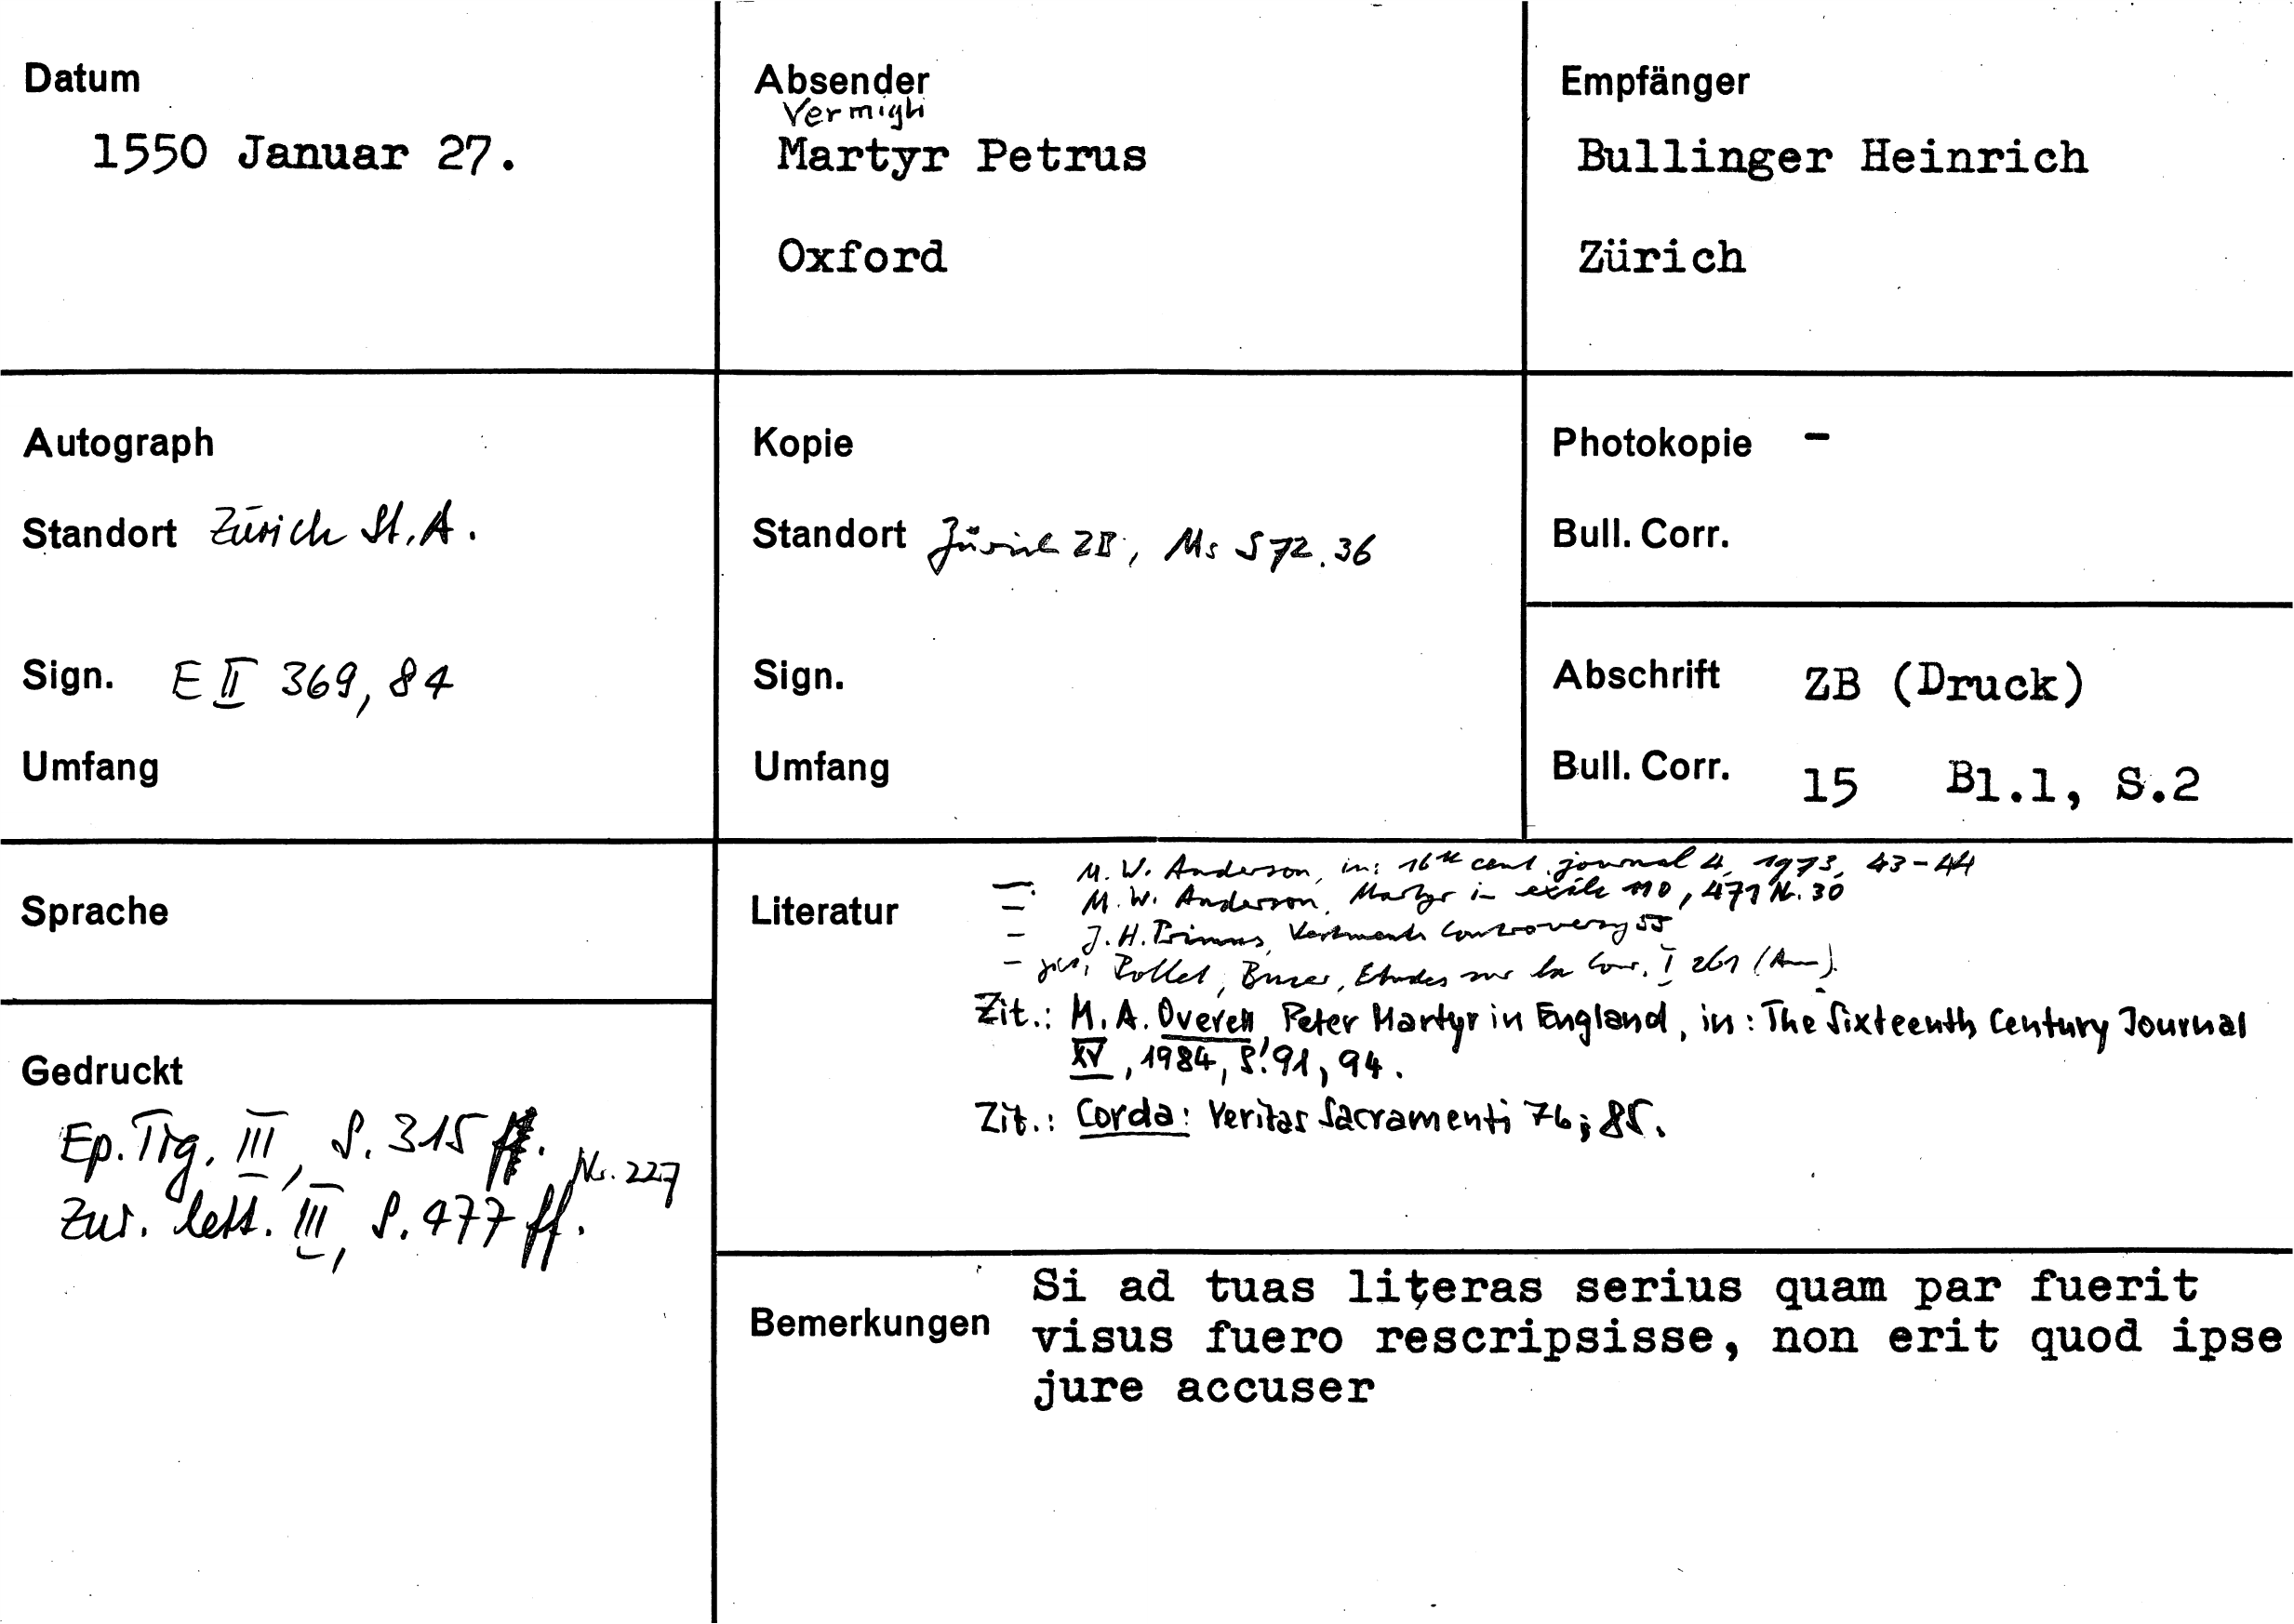 Datum
1550 Januar 27.
Absender
Vermigli
Martyr Petrus
Oxford
Empfänger
Bullinger Heinrich
Zürich
Autograph
Standort Zürich St.A.
Sign. E II 369, 84
Umfang
Kopie
Standort Zürich ZB, Ms S 72.36
Sign.
Umfang
Photokopie -
Bull. Corr.
Abschrift ZB (Druck)
Bull. Corr. 15 Bl.1, S.2
Sprache
Gedruckt
Ep. Tig. III, S. 315 ff.
Nr. 227
Zur. lett. III, S. 477 ff.
Literatur
- M. W. Anderson, in: 16th cent. journal 4, 1973, 43-44
- M. W. Anderson, Martyr in exile 110, 471 N. 30
- J. H. Primus, Vestments Controversy 55
- Pollet, Bucer, Etudes sur la Corr. I 261 (Anm).
Zit.: M. A. Overell, Peter Martyr in England, in: The Sixteenth Century Journal
XV, 1984, S. 91, 94.
Zit.: Corda: Veritas Sacramenti 76; 85.
Bemerkungen
Si ad tuas literas serius quam par fuerit
visus fuero rescripsisse, non erit quod ipse
jure accuser